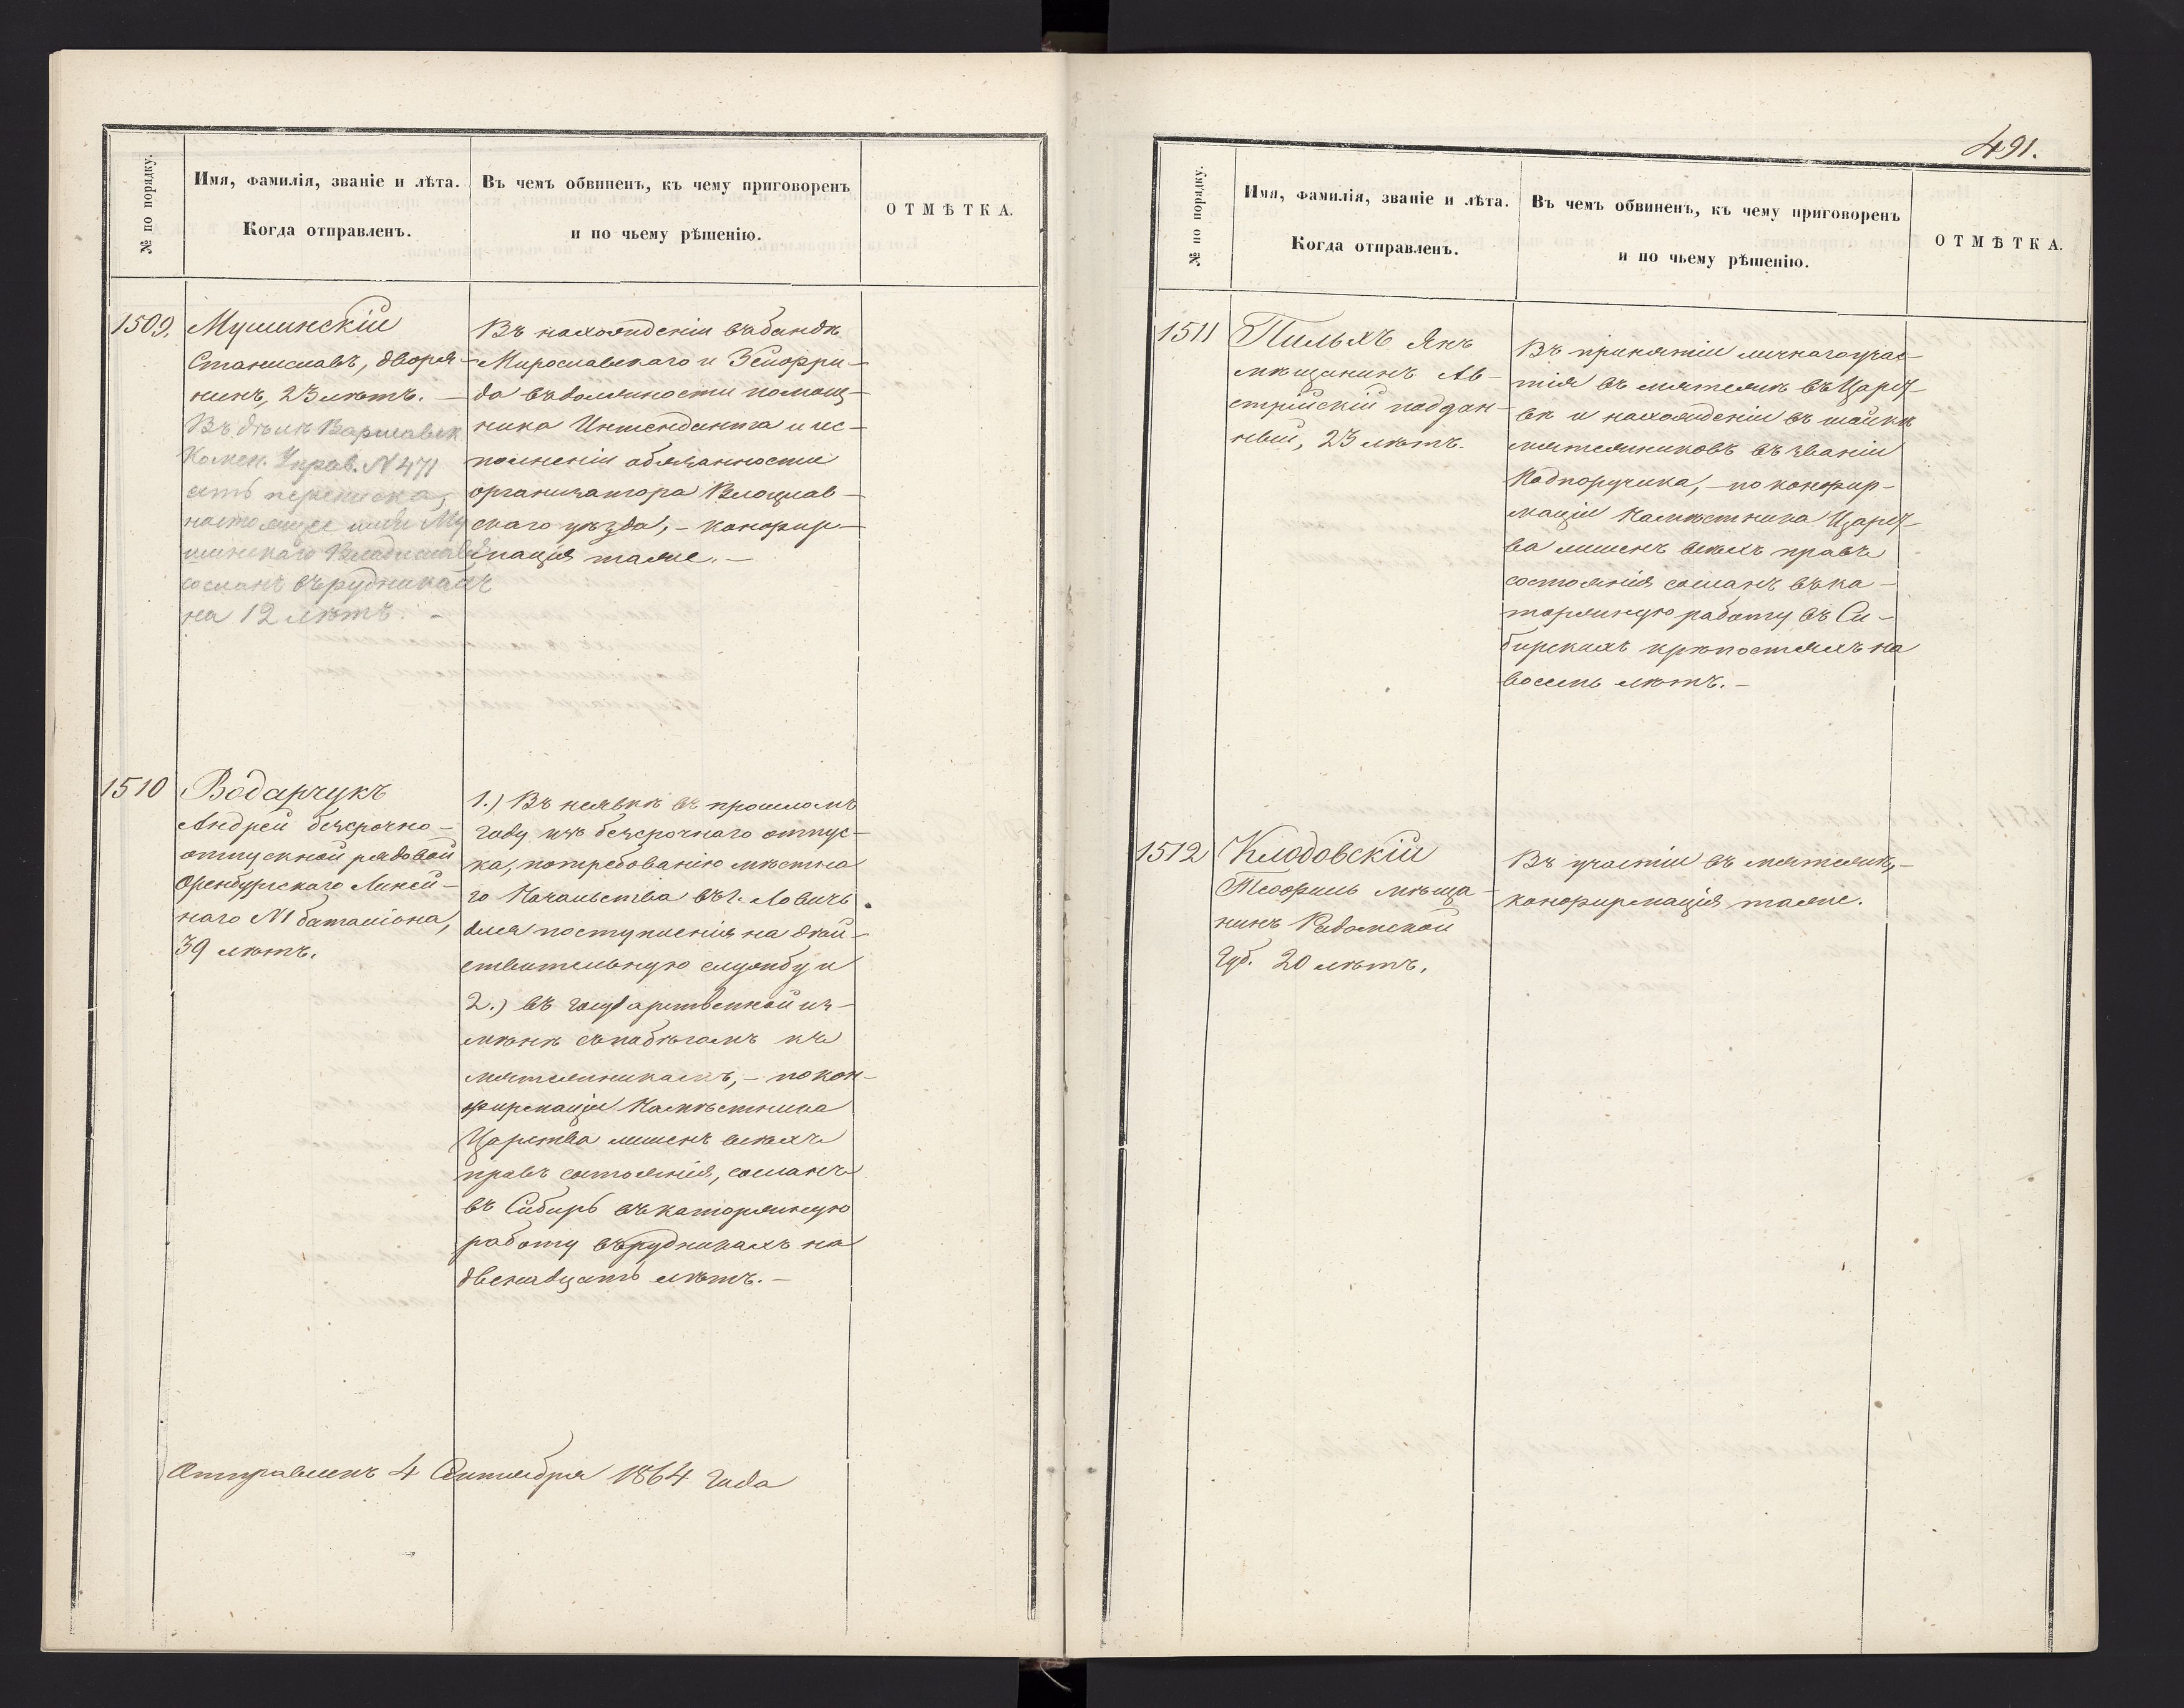 № по порядку.
Имя, фамилія, званіе и лѣта.
Когда отправленъ.
Въ чемъ обвиненъ, къ чему приговоренъ
и по чьему рѣшенію.
ОТМѢТКА.
1509.
Мушинскій
Станиславъ, дворя-
нинъ, 23 лѣтъ. —
Въ дѣлѣ Варшавск.
Комен. Управ. N 471
есть переписка,
настоящее имя Му
шинскаго Владиславъ,
сосланъ въ рудникахъ
на 12 лѣтъ. –
Въ нахожденіи въ бандѣ
Мирославскаго и Зейфри-
да въ должности помощ-
ника Интенданта и ис-
полненіи обязанности
организатора Влоцлав-
скаго уѣзда, – конфир-
мація таже. –
1510
Водарчукъ
Андрей безсрочно-
отпускной рядовой
Оренбургскаго Линей-
наго N1 баталіона,
39 лѣтъ.
1.) Въ неявкѣ въ прошломъ
году изъ безсрочнаго отпус-
ка, по требованію мѣстна
го Начальства въ г. Ловичь
для поступленія на дѣй-
ствительную службу и
2.) въ государственной из-
мѣнѣ съ побѣгомъ къ
мятежникамъ, – по кон-
фирмаціи Намѣстника
Царства лишенъ всѣхъ
правъ состоянія, сосланъ
въ Сибирь въ каторжную
работу въ рудникахъ на
двенадцать лѣтъ. –
Отправленъ 4 Сентября 1864 года
491.
№ по порядку.
Имя, фамилія, званіе и лѣта.
Когда отправленъ.
Въ чемъ обвиненъ, къ чему приговоренъ
и по чьему рѣшенію.
ОТМѢТКА.
1511
Пильхъ Янъ
мѣщанинъ Ав-
стрійскій поддан-
ный, 23 лѣтъ.
Въ принятіи личнаго учас-
тія въ мятежѣ въ Царст-
вѣ и нахожденіи въ шайкѣ
мятежниковъ въ званіи
Подпоручика, – по конфир-
маціи Намѣстника Царст-
ва лишенъ всѣхъ правъ
состоянія сосланъ въ ка-
торжную работу въ Си-
бирскихъ крѣпостяхъ на
восемь лѣтъ. –
1512
Клодовскій
Теофиль мѣща-
нинъ Радомской
Губ. 20 лѣтъ.
Въ участіи въ мятежѣ, –
конфирмація таже.